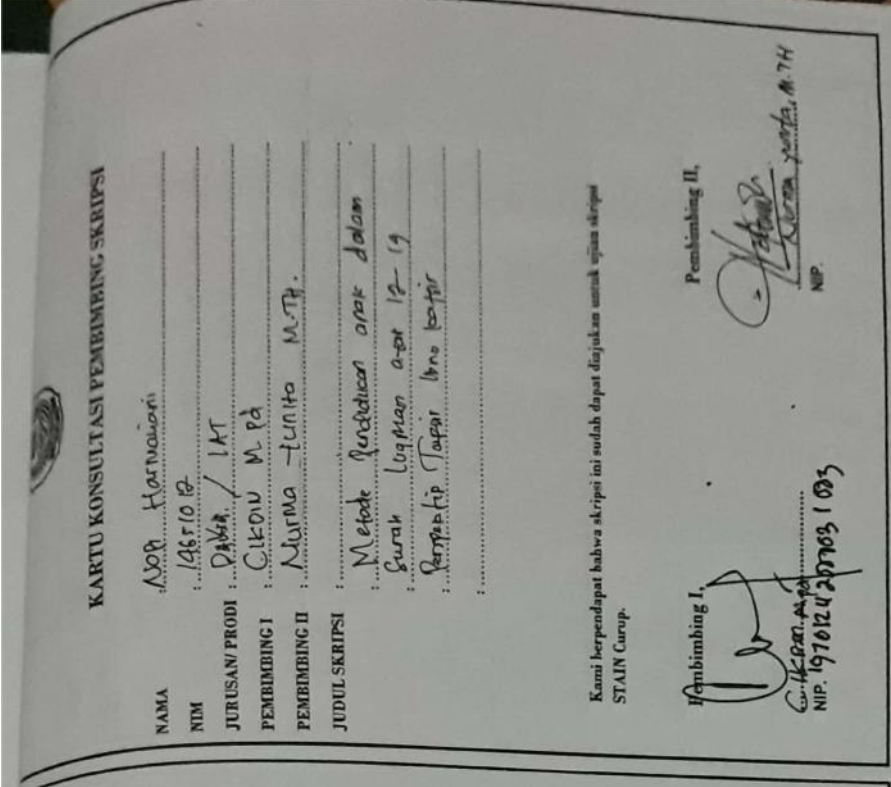 KARTU KONSULTASI PEMBIMBING SKRIPSI
NAMA : Nopi Harnaiani
NIM : 19651012
JURUSAN/ PRODI : Dakwa / IAT
PEMBIMBING I : Cikdin M.Pd
PEMBIMBING II : Nurma Yunita M.TH.
JUDUL SKRIPSI :
: Metode Pendidikan anak dalam
: Surah Luqman ayat 12-19
: Perspektip Tapsir Ibnu katsir
:
Kami berpendapat bahwa skripsi ini sudah dapat diajukan untuk ujian skripsi
STAIN Curup.
Pembimbing I,
Pembimbing II,
Cikdin. M.pd
Nurma yunita, M.TH
NIP. 19701242000031003
NIP.